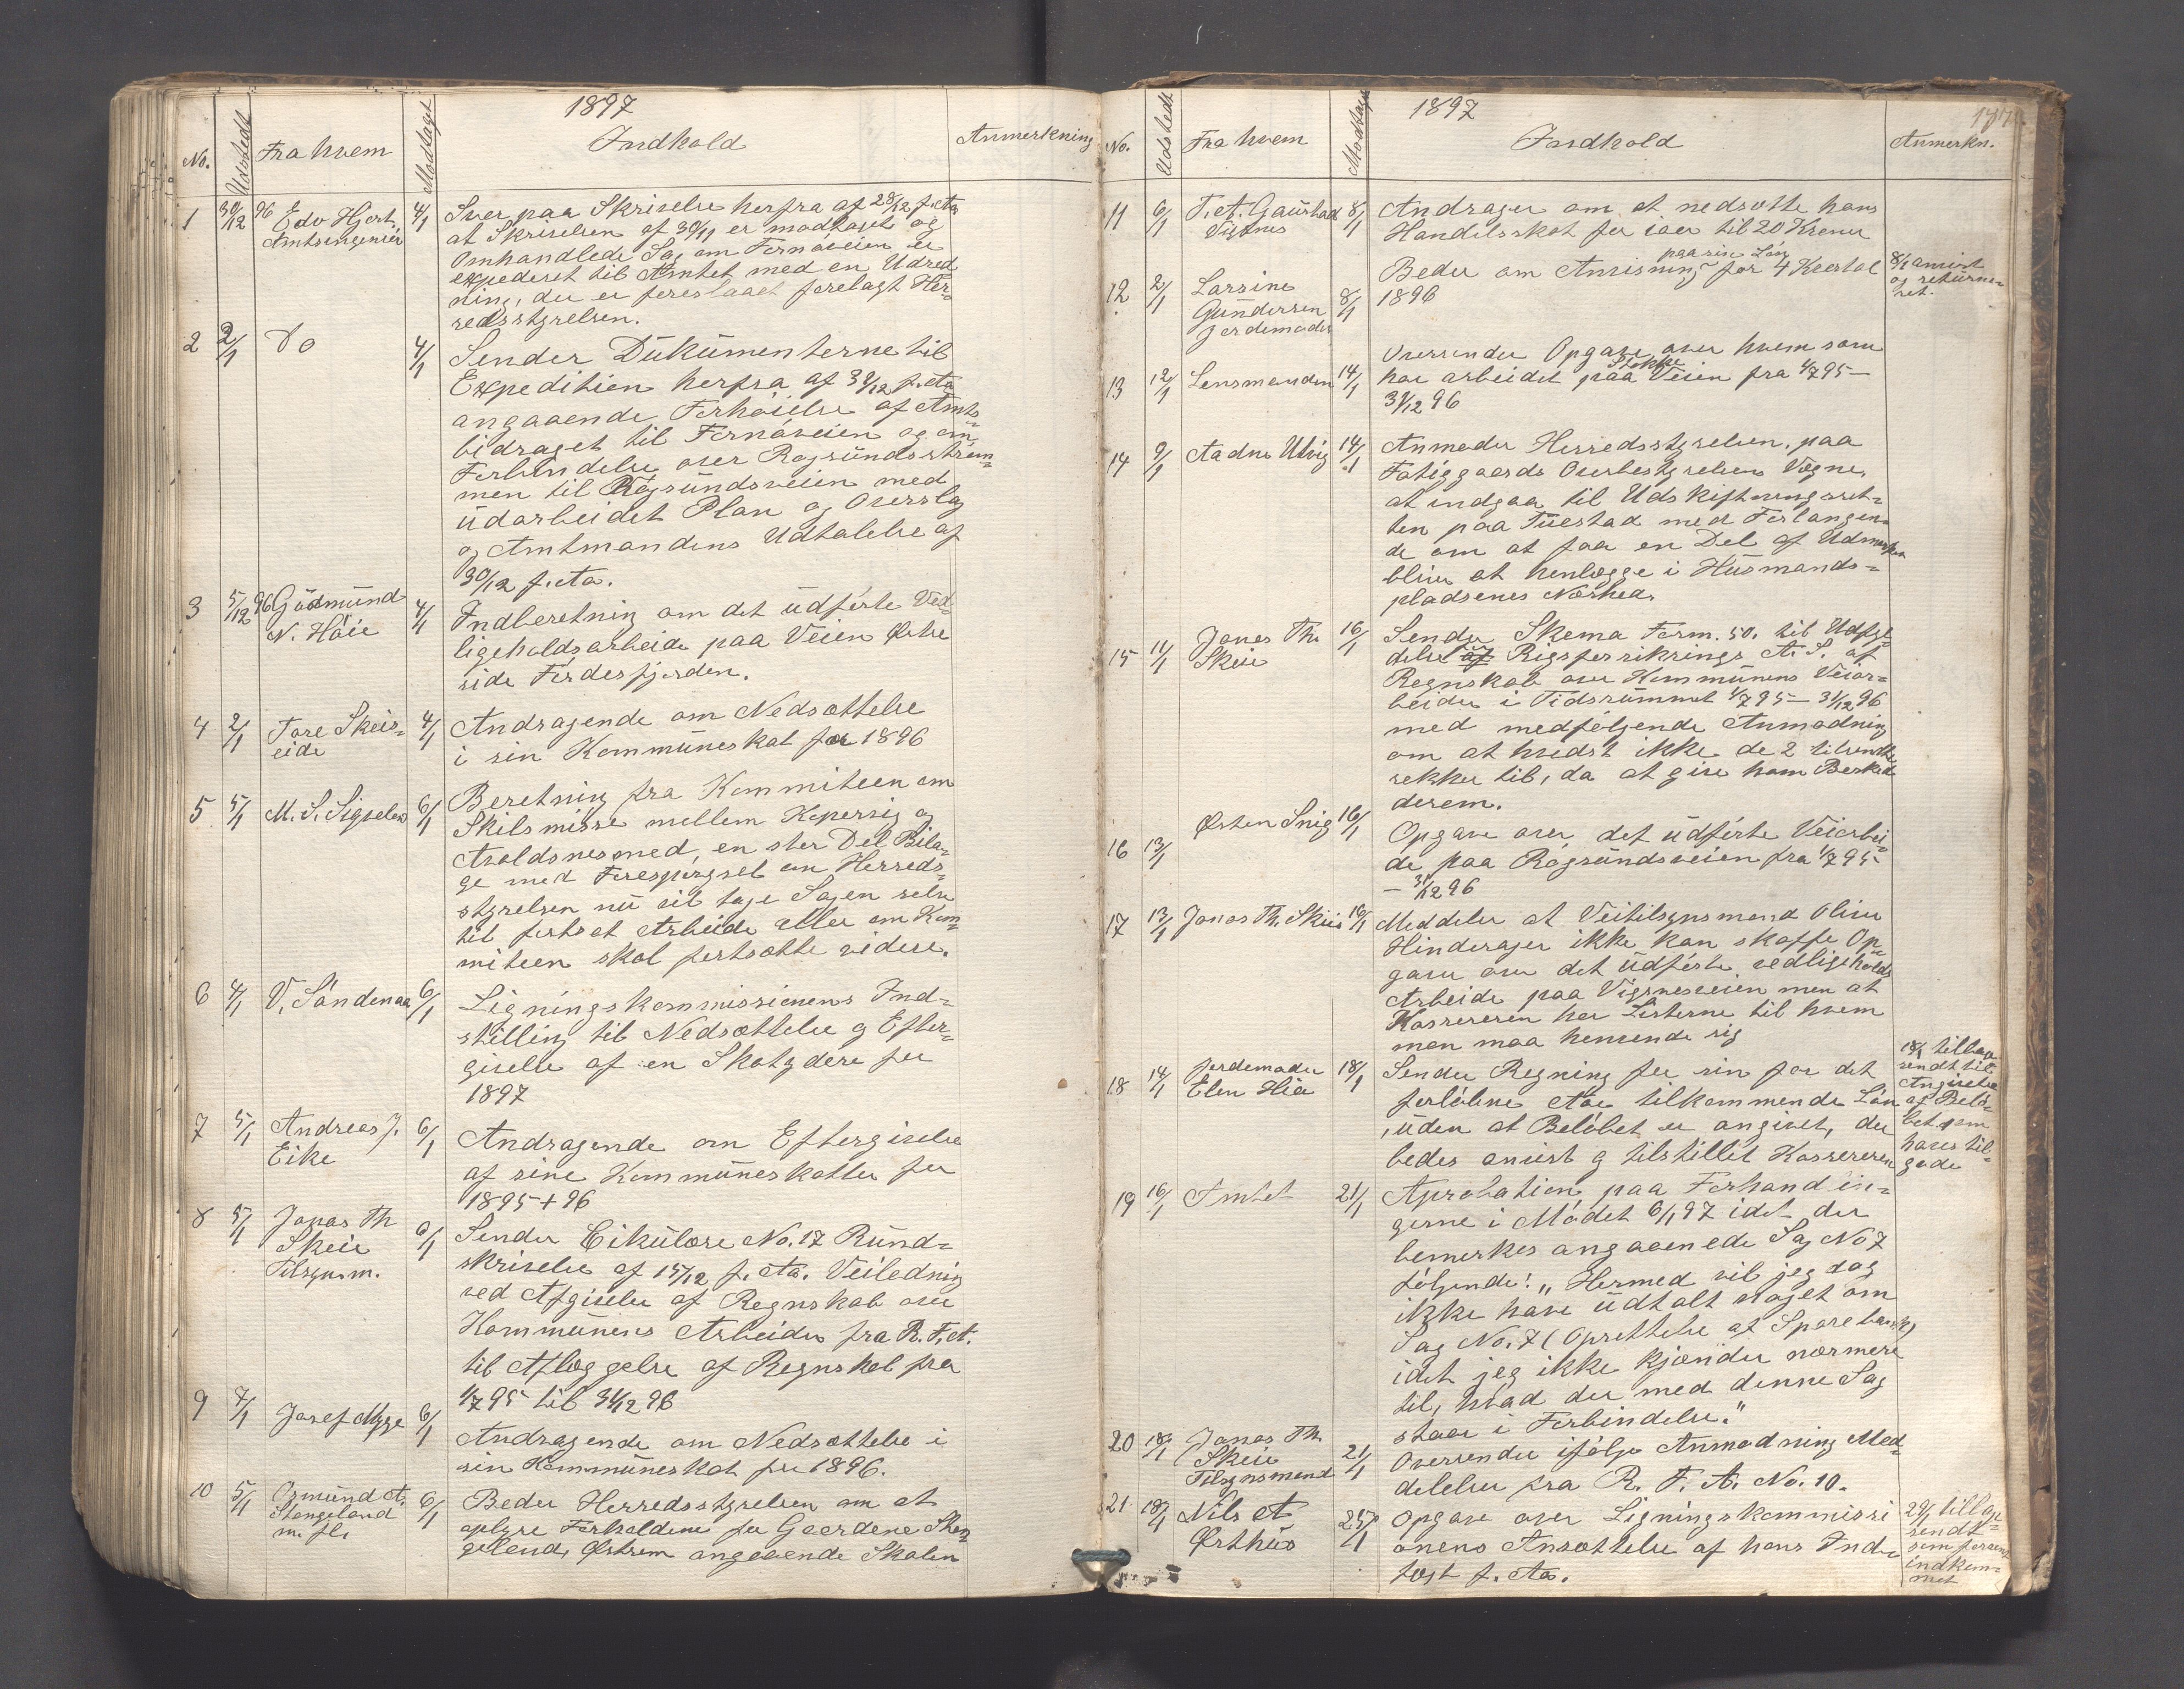 1897
No. Udstedt Fra hvem Modtaget Indhold Anmerkning
1 30/12 96 Edv Hjort, Amtsingeniør 4/1 Svar paa Skrivelse herfra af 28/12 f. Aa.
at Skrivelsen af 30/11 er modtaget og
omhandlede Sag om Fernøveien er
expederet til Amtet med en Udred
ning, der er foreslaaet forelagt Her-
redsstyrelsen.
2 2/1 Do 4/1 Sender Dükümenterne til
Expedition herfra af 31/12 f. Aa
angaaende Forhøielse af Amts-
bidraget til Fernøveien og om
Forbindelse over Røgsündsstrøm-
men til Røgsundsveien med
üdarbeidet Plan og Overslag
og Amtmandens Udtalelse af
30/12 f. Aa.
3 5/12 96 Güdmünd N. Høie 4/1 Indberetning om det üdførte Ved-
ligeholdsarbeide paa Veien Østre
side Førdesfjorden.
4 2/1 Tore Skeis-
eide 4/1 Andragende om Nedsættelse
i sin Kommüneskat for 1896
5 5/1 M. S. 6/1 Beretning fra Kommiteen om
Skilsmisse mellem Kopervig og
Avaldsnes med en stor Del Bila-
ge med Forespørgsel om Herreds-
styrelsen nü vil tage Sagen selv
til fortsat Arbeide eller om Kom
miteen skal fortsætte videre.
6 4/1 V. Søndenaa 6/1 Ligningskommissionens Ind-
stilling til Nedsættelse og Efter-
givelse af en Skatydere for
1897
7 5/1 Andreas J.
Eike 6/1 Andragende om Eftergivelse
af sine Kommüneskatter for
1895 + 96
8 5/1 Jonas Th
Skeie
Tilsynsm. 6/1 Sender Cikülære No. 17 Ründ-
skrivelse af 15/12 f. Aa. Veiledning
ved Afgivelse af Regnskab over
Kommünens Arbeider fra R. F. A.
til Aflæggelse af Regnskab fra
1/7 95 til 31/12 96
9 7/1 Josef Mygge 6/1 Andragende om Nedsættelse i
sin Kommüneskat for 1896.
10 5/1 Osmünd A.
Stangeland
m. fl. 6/1 Beder Herredsstyrelsen om at
oplyse Forholdene for Gaardene Stan
geland, Østrem angaaende Skolen
1897
No. Udstedt Fra hvem Modtaget Indhold Anmerkn.
11 6/1 T. A. Gaüstad
Vignes 8/1 Andrager om at nedsætte hans
Handelsskat for iaar til 20 Kroner
12 2/1 Larsine
Gündersen
Jordemoder 8/1 Beder om Anvisning paa sin Løn for 4 Kvartal
1896
8/1 anvist
og retürne-
ret.
13 12/1 Lensmanden 14/1 Oversender Opgave over hvem som
har arbeidet paa Veien fra 1/7 95 -
31/12 96
14 9/1 Aadne Utvig 14/1 Anmoder Herredsstyrelsen, paa
Fattiggaards Overbestyrelsens Vegne,
at indgaa til Udskiftningsret-
ten paa Tüestad med Forlangen-
de om at faa en Del af Udmarken
blive at henlægge i Hüsmands-
pladsenes Nærhed.
15 11/1 Jonas Th.
Skeie 16/1 Sender Skema Form. 50. til Udfyl-
delse Rigsforsikrings A. S. af
Regnskab over Kommünens Veiar-
beider i Tidsrümmet 1/7 95 - 31/12 96
med medfølgende Anmodning
om at hvidst ikke de 2 tilsendte
rekker til, da at give ham Besked
derom.
16 13/1 Østen Snig 16/1 Opgave over det üdførte Veiarbei-
de paa Røgsündsveien fra 1/7 95 -
- 31/12 96
17 13/1 Jonas Th. Skeie 16/1 Meddeler at Veitilsynsmand Oliver
Hinderager ikke kan skaffe Op-
gave over det üdførte vedligeholds
Arbeide paa Vignesveien men at
Kassereren har Listerne til hvem
man maa henvende sig
18 14/1 Jordemoder
Elen Hia 18/1 Sender Regning for sin for det
forløbne Aar tilkommende Løn
, üden at Beløbet er angivet, der
bedes anvist og tilstillet Kassereren
18/1 tilbage
sendt til
Angivelse
af Belø-
bet som
haves til-
gode
19 16/1 Amtet 21/1 Aprobation paa Forhandlin-
gerne i Mødet 6/1 97 idet der
bemerkes angaaende Sag No 7
følgende: "Hermed vil jeg dog
ikke have üdtalt noget om
Sag No. 7 (Oprettelse af Sparebank)
idet jeg ikke kjender nærmere
til, hvad der med denne Sag
staar i Forbindelse."
20 18/1 Jonas Th
Skeie
Tilsynsmand 21/1 Oversender ifølge Anmodning Med-
delelser fra R. F. A. No. 10.
21 18/1 Nils A
Østhüs 25/1 Opgave over Ligningskommissi
onens Ansættelse af hans Ind-
tægt f. Aa.
29/1 tilbage-
sendt
som forsent
indkom-
met